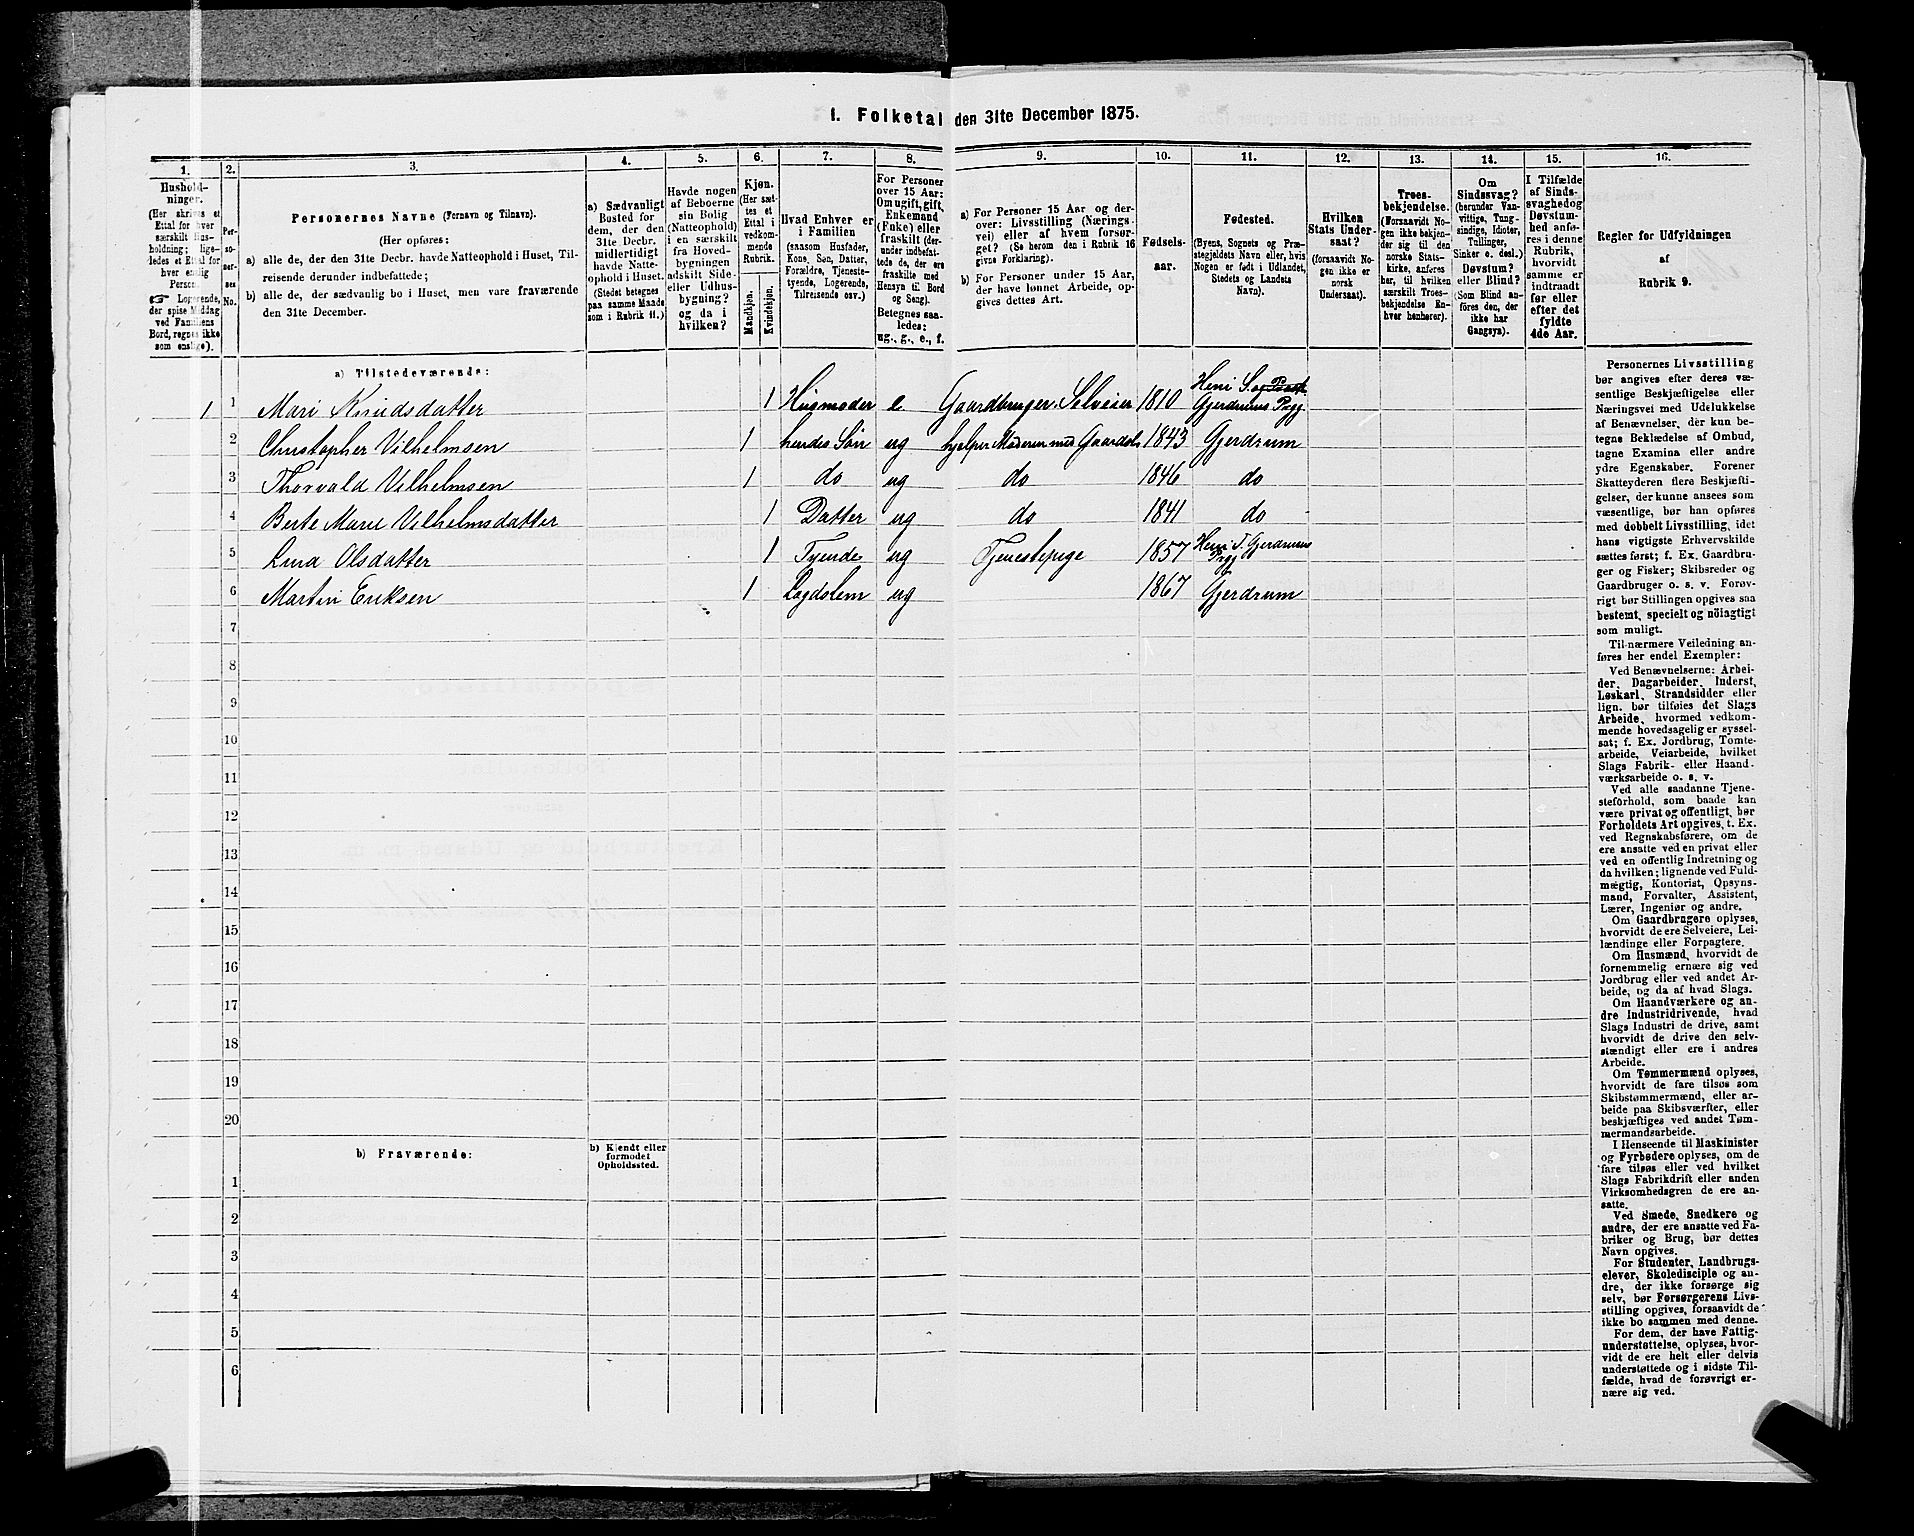 1. Folketal den 31te December 1875.
1. 2. 3. 4. 5. 6. 7. 8. 9. 10. 11. 12. 13. 14. 15. 16.
Hushold-
ninger.
(Her skrives et
Ettal for hver
særskilt Hus-
holdning; lige-
ledes et Ettal for
hver enslig
Person.
☞ Logerende,
der spise Middag
ved Familiens
Bord, regnes ikke
som enslige).
Per-
so-
ner-
nes
No.
Personernes Navne (Fornavn og Tilnavn).
(Her opføres:
a) alle de, der den 31te Decbr. havde Natteophold i Huset, Til-
reisende derunder indbefattede;
b) alle de, der sædvanlig bo i Huset, men vare fraværende
den 31te December.
a) Sædvanligt
Busted for
dem, der den
31te Decbr.
midlertidigt
havde Natte-
ophold i Huset.
(Stedet betegnes
paa samme Maade
som i Rubrik 11.)
Havde nogen
af Beboerne
sin Bolig
(Natteophold)
i en særskilt
fra Hoved-
bygningen
adskilt Side-
eller Udhus-
bygning?
og da i
hvilken?
Kjøn.
(Her sæt-
tes et
Ettal i
vedkom-
mende
Rubrik.
Mandkjøn.
Kvindekjøn.
Hvad Enhver er
i Familien
(saasom Husfader,
Kone, Søn, Datter,
Forældre, Tjeneste-
tyende, Logerende,
Tilreisende osv.)
For Personer
over 15 Aar:
Om ugift, gift,
Enkemand
(Enke) eller
fraskilt (der-
under indbefat-
tede de, der ere
fraskilte med
Hensyn til Bord
og Seng).
Betegnes saa-
ledes:
ug., g., e., f.
a) For Personer 15 Aar og der-
over: Livsstilling (Nærings-
vei) eller af hvem forsør-
get? (Se herom den i Rubrik 16
givne Forklaring).
b) For Personer under 15 Aar,
der have lønnet Arbeide, op-
gives dettes Art.
Fødsels-
aar.
Fødested.
(Byens, Sognets og Præ-
stegjeldets Navn eller, hvis
Nogen er født i Udlandet,
Stedets og Landets
Navn).
Hvilken
Stats Under-
saat?
(forsaavidt No-
gen ikke er
norsk
Undersaat).
Troes-
bekjendelse.
(Forsaavidt No-
gen ikke bekjen-
der sig til den
norske Stats-
kirke, anføres
her, til hvilken
særskilt Troes-
bekjendelse En-
hver henhører).
Om
Sindssvag?
(herunder Van-
vittige, Tung-
sindige, Idioter,
Tullinger,
Sinker o. desl.)
Døvstum?
eller Blind?
(Som Blind an-
føres den, der
ikke har
Gangsyn).
I Tilfælde
af Sinds-
svaghed og
Døvstum-
hed anfø-
res i denne
Rubrik,
hvorvidt
samme er
indtraadt
før eller
efter det
fyldte
4de Aar.
Regler for Udfyldningen
af
Rubrik 9.
a) Tilstedeværende:
1 1 Mari Knudsdatter 1 Husmoder e Gaardbruger, Selveier 1810 Heni S. og Præst. Gjerdrums Prgj.
2 Christopher Vilhelmsen 1 hendes Søn ug hjelper Moderen med Gaardsb 1843 Gjerdrum
3 Thorvald Vilhelmsen 1 do ug do 1846 do
4 Berte Marie Vilhelmsdatter 1 Datter ug do 1841 do
5 Lina Olsdatter 1 Tyende ug Tjenestepige 1857 Heni S. Gjerdrums Prgj
6 Martin Eriksen 1 Lægdslem ug 1867 Gjerdrum
7
8
9
10
11
12
13
14
15
16
17
18
19
20
b) Fraværende:
b) Kjendt eller
formodet
Opholdssted.
1
2
3
4
5
6
Personernes Livsstilling
bør angives efter deres væ-
sentlige Beskjæftigelse eller
Næringsvei med Udelukkelse
af Benævnelser, der kun be-
tegne Beklædelse af Ombud,
tagne Examina eller andre
ydre Egenskaber. Forener
Skatteyderen flere Beskjæfti-
gelser, der kunne ansees som
væsentlige, bør han opføres
med dobbelt Livsstilling, idet
hans vigtigste Erhvervskilde
sættes først; f. Ex. Gaardbru-
ger og Fisker; Skibsreder og
Gaardbruger o. s. v. Forøv-
rigt bør Stillingen opgives saa
bestemt, specielt og nöiagtigt
som muligt.
Til nærmere Veiledning an-
føres her endel Exempler:
Ved Benævnelserne: Arbei-
der, Dagarbeider, Inderst,
Løskarl, Strandsidder eller
lign. bør tilføies det Slags
Arbeide, hvormed vedkom-
mende hovedsagelig er syssel-
sat; f. Ex. Jordbrug, Tomte-
arbeide, Veiarbeide, hvilket
Slags Fabrik- eller Haand-
værksarbeide o. s. v.
Ved alle saadanne Tjene-
steforhold, som baade kan
være privat og offentligt, bør
Forholdets Art opgives, t. Ex.
ved Regnskabsførere, om de
ere ansatte ved en privat eller
ved en offentlig Indretning og
da hvilken; lignende ved Fuld-
mægtig, Kontorist, Opsyns-
mand, Forvalter, Assistent,
Lærer, Ingeniør og andre.
Om Gaardbrugere oplyses,
hvorvidt de ere Selveiere, Lei-
lændinge eller Forpagtere.
Om Husmænd, hvorvidt de
fornemmelig ernære sig ved
Jordbrug eller ved andet Ar-
beide, og da af hvad Slags.
Om Haandværkere og an-
dre Industridrivende, hvad
Slags Industri de drive, samt
hvorvidt de drive den selv-
stændigt eller ere i andres
Arbeide.
Om Tømmermænd oplyses,
hvorvidt de fare tilsøs som
Skibstømmermænd, eller ar-
beide paa Skibsværfter, eller
beskjæftiges ved andet Tøm-
mermandsarbeide.
I Henseende til Maskinister
og Fyrbødere oplyses, om de
fare tilsøs eller ved hvilket
Slags Fabrikdrift eller anden
Virksomhedsgren de ere an-
satte.
Ved Smede, Snedkere og
andre, der ere ansatte ved Fa-
briker og Brug, bør dettes
Navn opgives.
For Studenter, Landbrugs-
elever, Skoledisciple og an-
dre, der ikke forsørge sig
selv, bør Forsørgerens Livs-
stilling opgives, forsaavidt de
ikke bo sammen med denne.
For dem, der have Fattig-
understøttelse, oplyses, hvor-
vidt de ere helt eller delvis
understøttede og i sidste Til-
fælde, hvad de forøvrigt er-
nære sig ved.